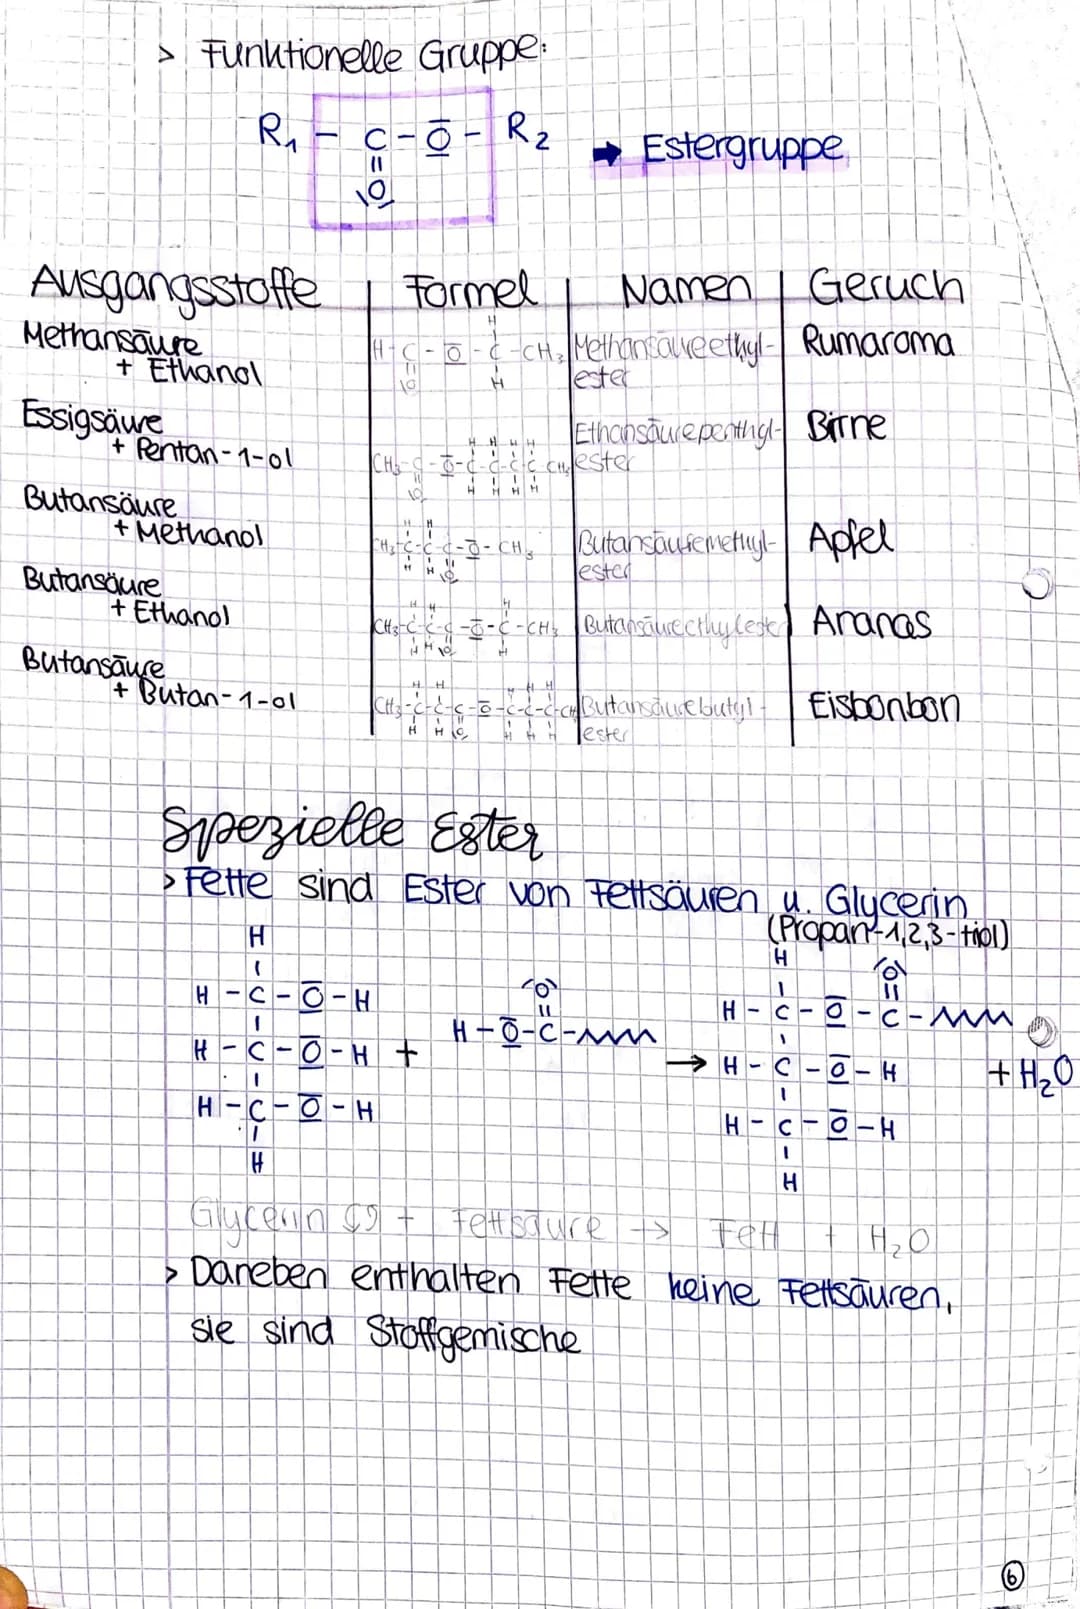 > Funktionelle Gruppe:
R₁ - C - O - R₂ → Estergruppe
||
|O|
Ausgangsstoffe | Formel | Namen | Geruch
Methansäure + Ethanol | H-C-O-C-CH₃ | Methansäureethyl-ester | Rumaroma
Essigsäure + Pentan-1-ol | CH₃-C-O-C-C-C-C-CH₃ | Ethansäurepenthyl-ester | Birne
Butansäure + Methanol | CH₃-C-C-C-O-CH₃ | Butansäuremethyl-ester | Apfel
Butansäure + Ethanol | CH₃-C-C-C-O-C-CH₃ | Butansäureethylester | Ananas
Butansäure + Butan-1-ol | CH₃-C-C-C-O-C-C-C-CH | Butansäurebutyl-ester | Eisbonbon
Spezielle Ester
> Fette sind Ester von Fettsäuren u. Glycerin
(Propan-1,2,3-tiol)
H H
H-C-O-H |O| H-C-O-C- |O|
H-C-O-H + H-O-C- → H-C-O-H + H₂O
H-C-O-H H-C-O-H
H H
Glycerin + Fettsäure → Fett + H₂O
> Daneben enthalten Fette keine Fettsäuren,
sie sind Stoffgemische
6